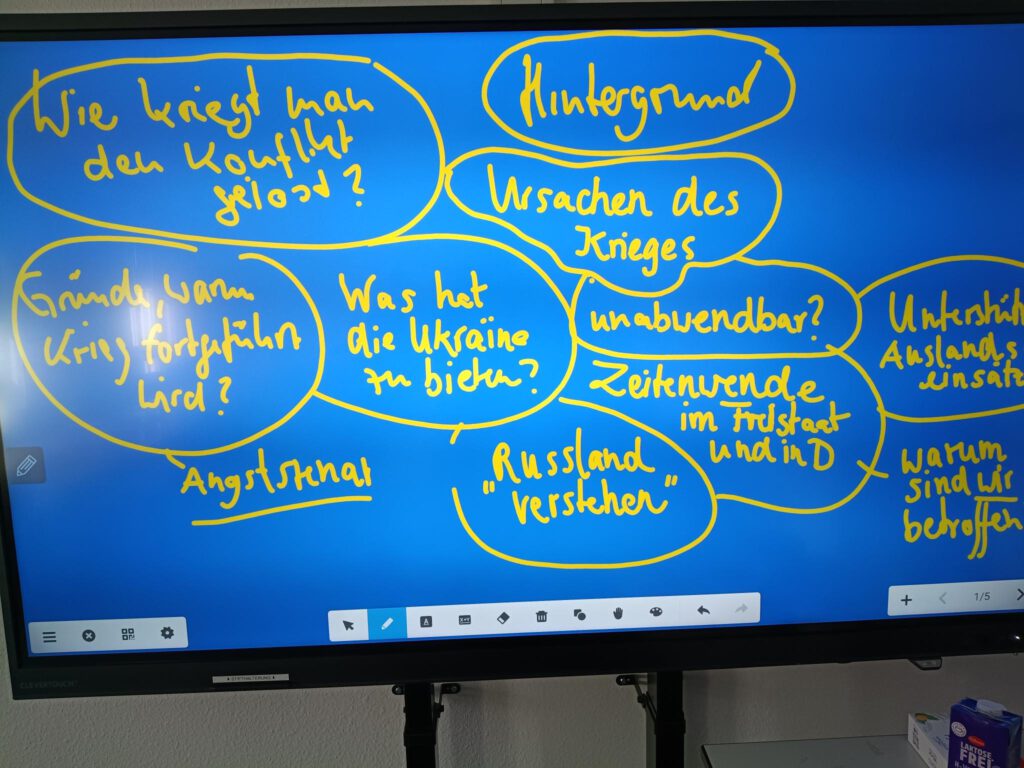 Wie kriegt man
den Konflikt
gelöst?
Hintergrund
Ursachen des
Krieges
Gründe, warum
Krieg fortgeführt
wird?
Was hat
die Ukraine
zu bieten?
unabwendbar?
Unterstütz
Auslands
einsätz
Zeitenwende
im Freistaat
und in D
Angstszenar
Russland
"verstehen"
warum
sind wir
betroffen
1/5
CLEVERTOUCH
STIFTHALTERUNG
LAKTOSE
FREI